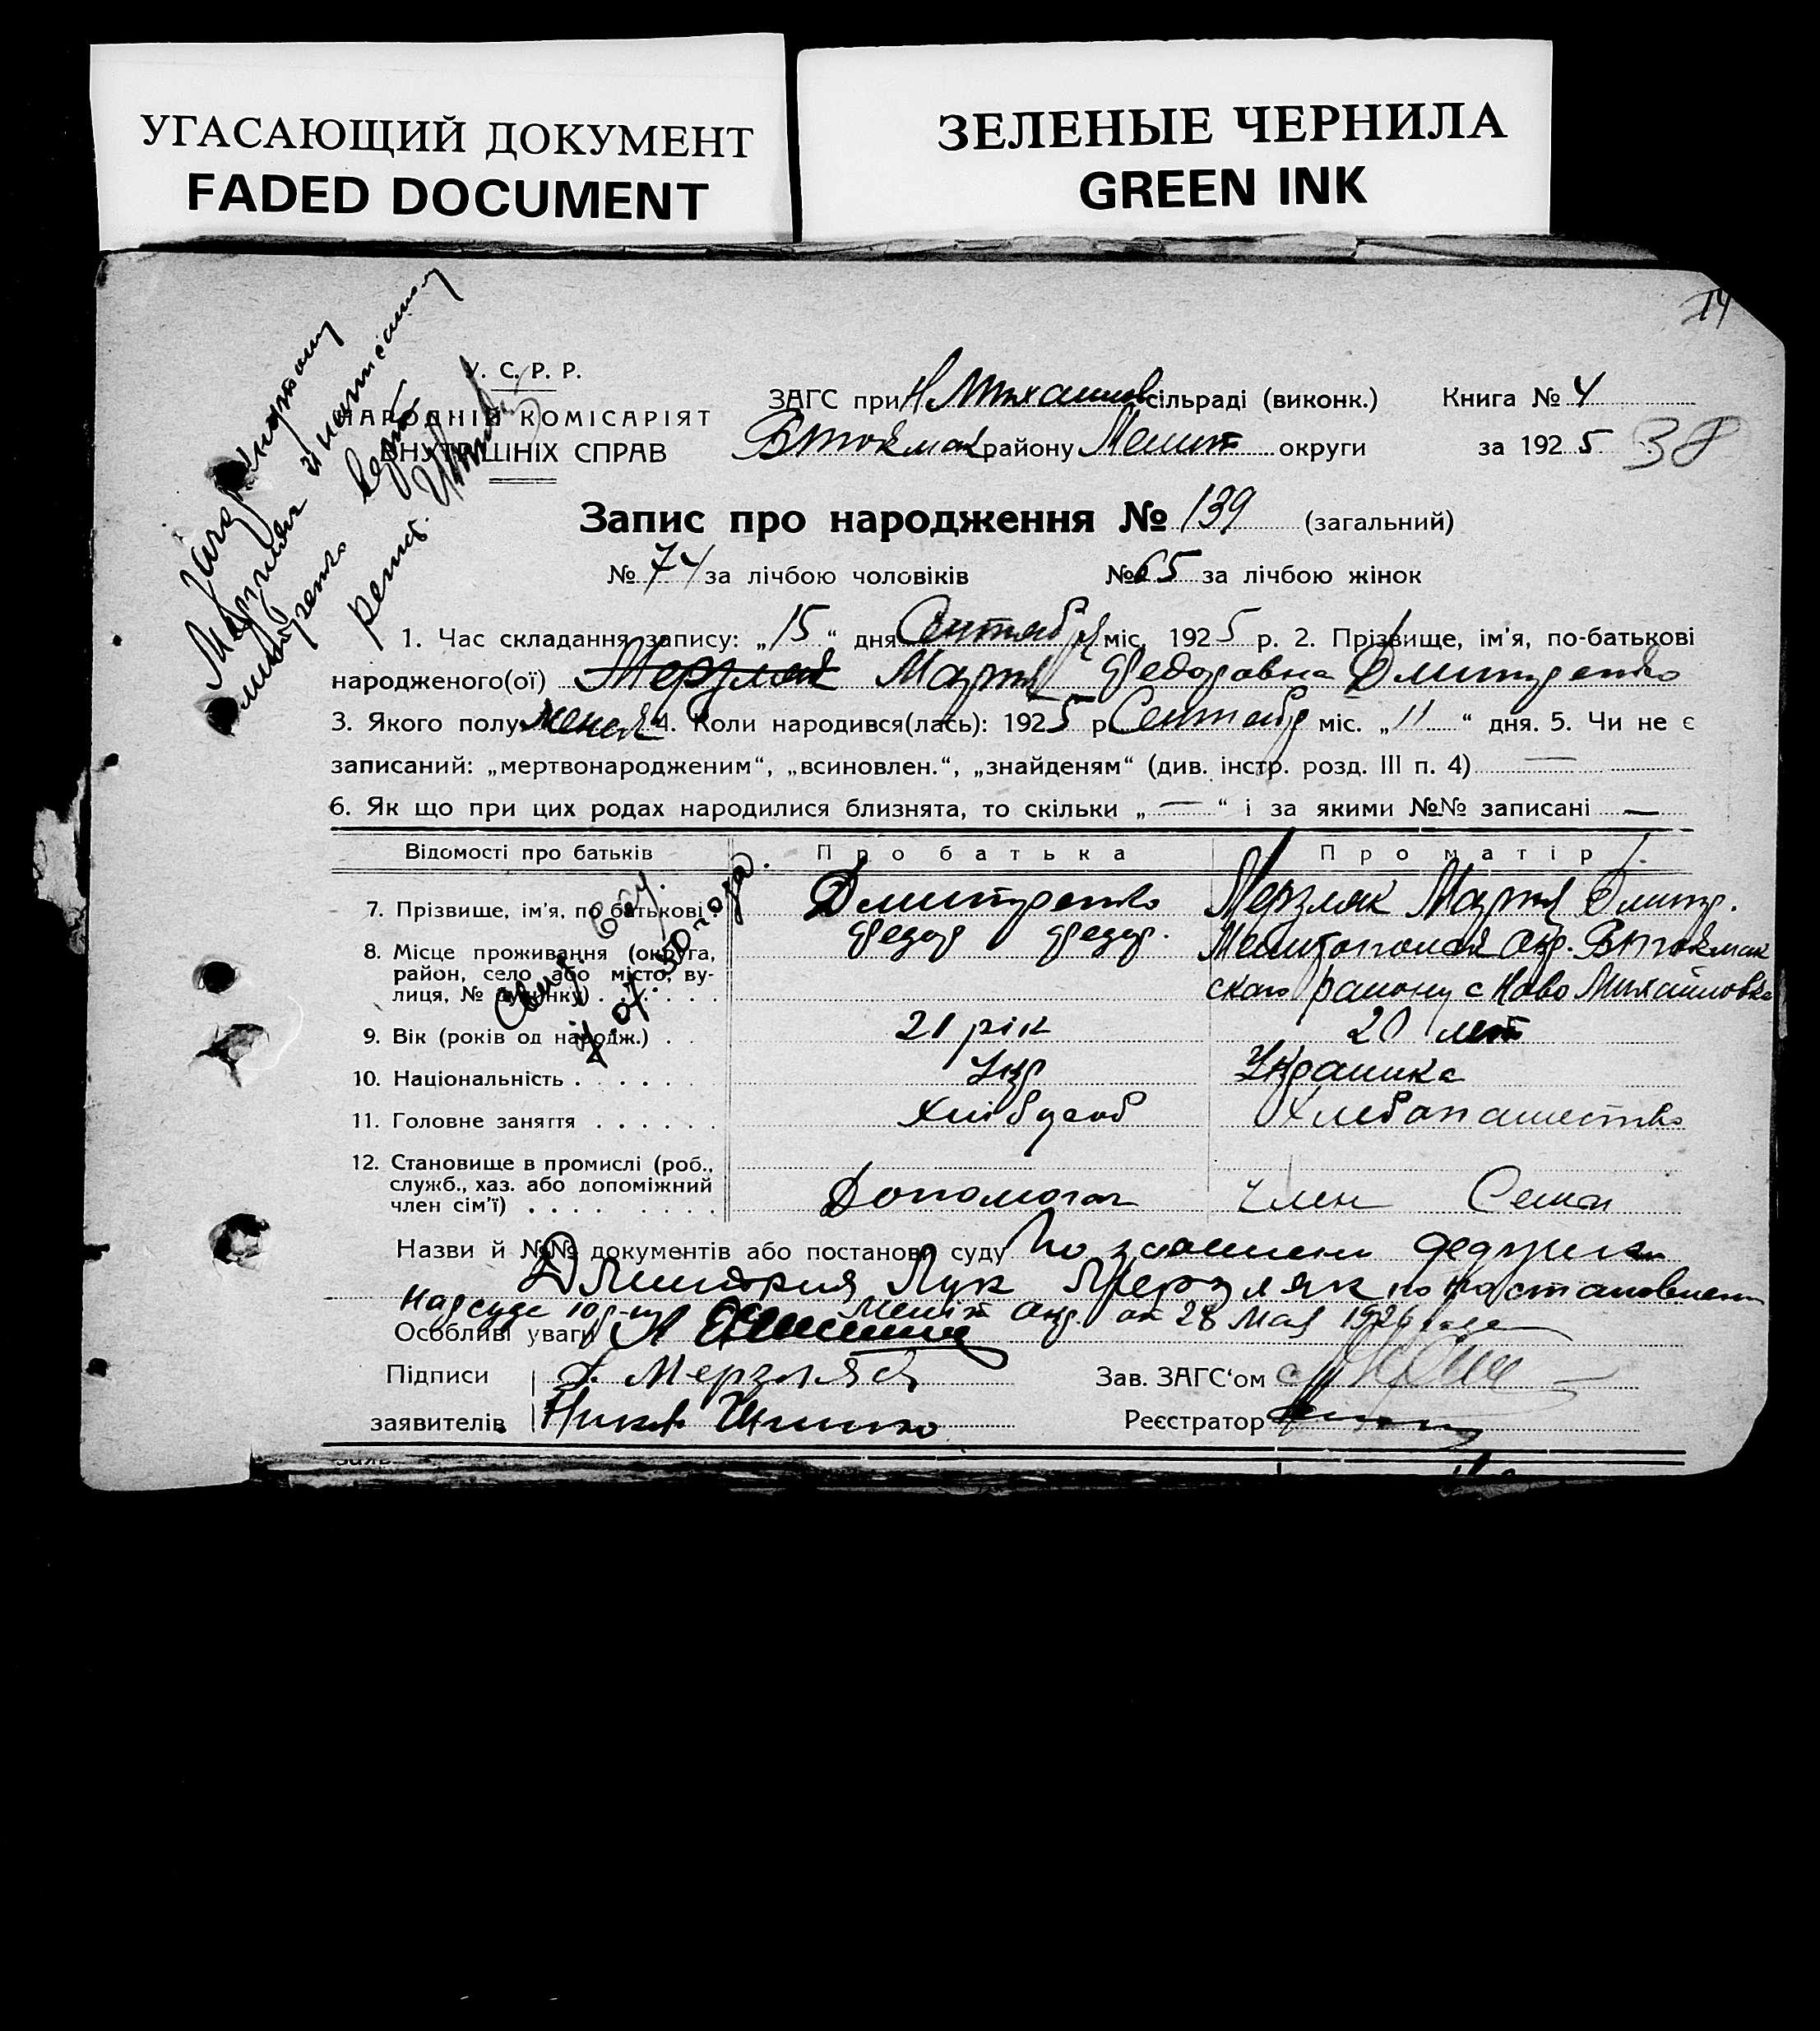 УГАСАЮЩИЙ ДОКУМЕНТ
FADED DOCUMENT
ЗЕЛЕНЫЕ ЧЕРНИЛА
GREEN INK
14
У. С. Р. Р.
НАРОДНІЙ КОМІСАРІЯТ
ВНУТРІШНІХ СПРАВ
ЗАГС при Н Михайлов сільраді (виконк.)
В Токмак району Мелит округи
Книга № 4
за 1925
38
Запис про народження № 139 (загальний)
№ 74 за лічбою чоловіків № 65 за лічбою жінок
1. Час складання запису: „15“ дня Сентября міс. 1925 р. 2. Прізвище, ім’я, по-батькові
народженого(ої) Мерзляк Мария Федоровна Дмитренко
3. Якого полу женск 4. Коли народився(лась): 1925 р Сентябр міс. „11“ дня. 5. Чи не є
записаний: „мертвонародженим“, „всиновлен.“, „знайденям“ (див. інстр. розд. III п. 4) —
6. Як що при цих родах народилися близнята, то скільки „—“ і за якими №№ записані —
Відомості про батьків Про батька Про матір
7. Прізвище, ім’я, по батькові Дмитренко Федор Федор. Мерзляк Мария Дмитр.
8. Місце проживання (округа, район, село або місто, вулиця, № будинку) Мелитопольск Окр. В Токмак
ского району с Ново Михайловка
9. Вік (років од народж.) 21 рік 20 лет
10. Національність Укр Украинка
11. Головне заняття Хлібороб Хлебопашество
12. Становище в промислі (роб., служб., хаз. або допоміжний член сім’ї) Допомогач Член Семьи
Назви й №№ документів або постанови суду По заявлени дедушки
Дмитрия Лук Мерзляк по постановлени
Нарсуда 10 р-ну Мелит окр. от 28 Мая 1926 года
Особливі уваги
Підписи Д. Мерзляк Зав. ЗАГС‘ом
заявителів Реєстратор